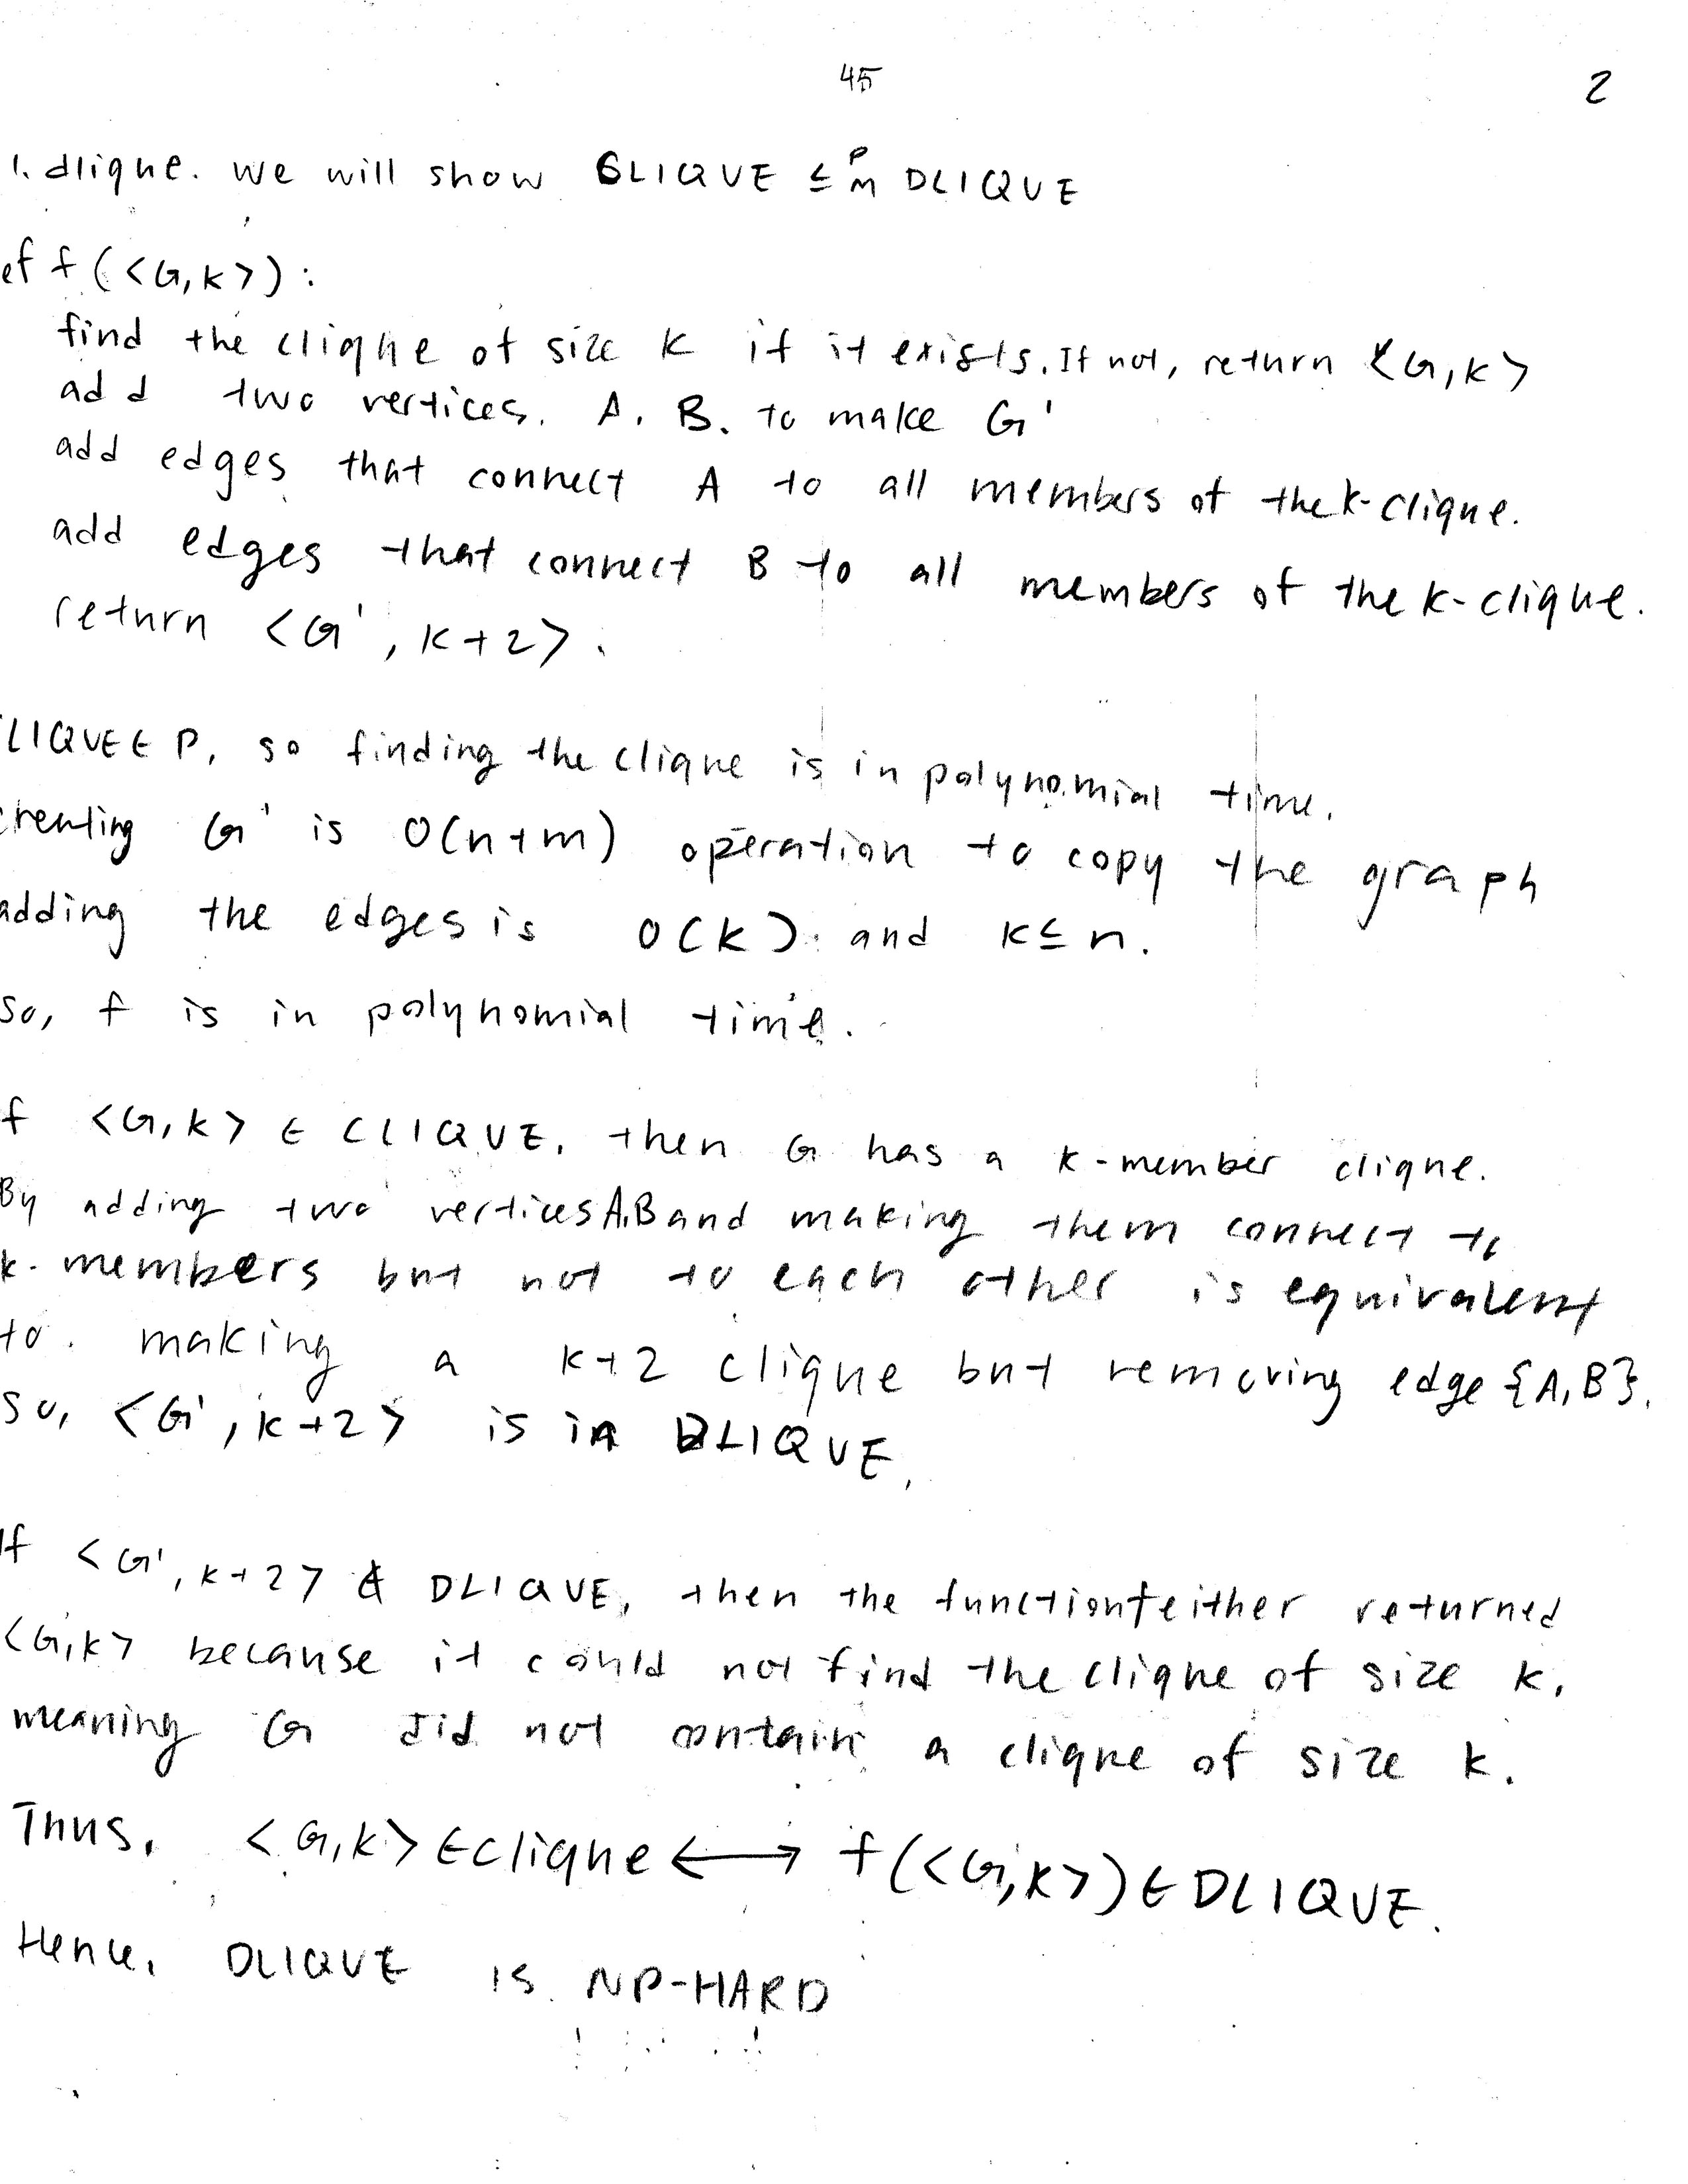 45
2
1. dlique. we will show CLIQUE ≤ᴾₘ DLIQUE
ef f(<G,k>):
find the clique of size k if it exists. If not, return <G,k>
add two vertices. A. B. to make G'
add edges that connect A to all members of the k-clique.
add edges that connect B to all members of the k-clique.
return <G', k+2>.
LIQUE ∈ P, so finding the clique is in polynomial time.
creating G' is O(n+m) operation to copy the graph
adding the edges is O(k) and k≤n.
so, f is in polynomial time.
f <G,k> ∈ CLIQUE, then G has a k-member clique.
By adding two vertices A,B and making them connect to
k-members but not to each other is equivalent
to making a k+2 clique but removing edge {A,B}.
so, <G', k+2> is in DLIQUE.
If <G', k+2> ∉ DLIQUE, then the function f either returned
<G,k> because it could not find the clique of size k,
meaning G did not contain a clique of size k.
Thus, <G,k> ∈ clique ⟷ f(<G,k>) ∈ DLIQUE.
Hence, DLIQUE is NP-HARD